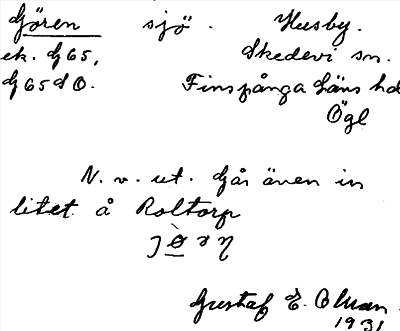 Gören sjö. Husby.
ek. G65, Skedevi sn.
G65dO. Finspånga Läns hd
Ögl
N. v. ut. Går även in
litet å Roltorp
Gustaf E. Olman.
1931